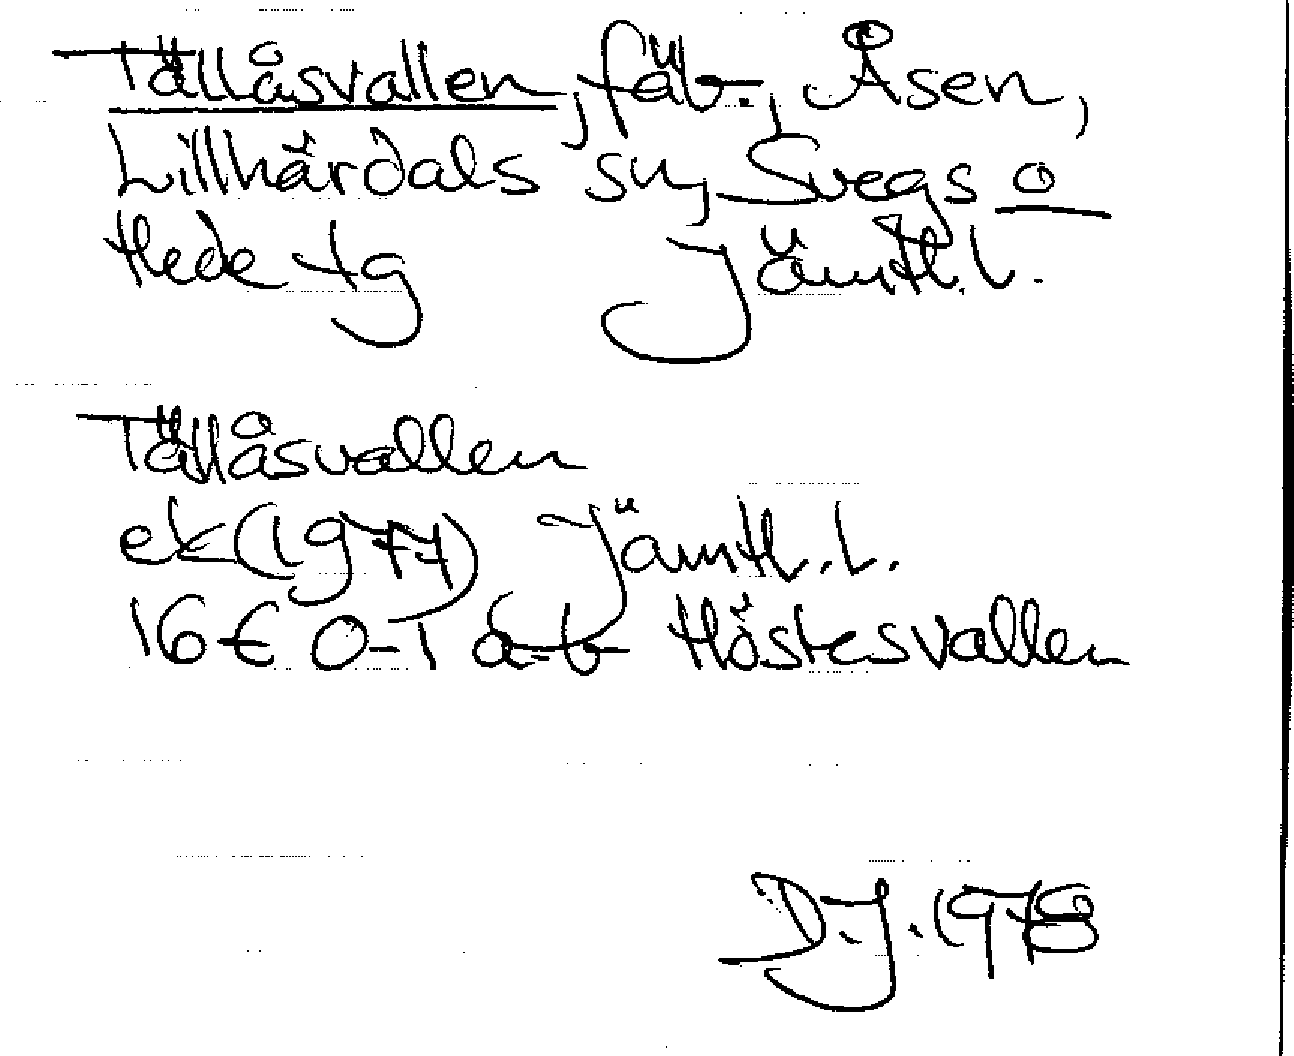 Tällåsvallen, fäb., Åsen,
Lillhärdals sn, Svegs o
Hede tg Jämtl. l.
Tällåsvallen
ek (1977) Jämtl. l.
16E 0-1 a-b Höstesvallen
D.J. 1978